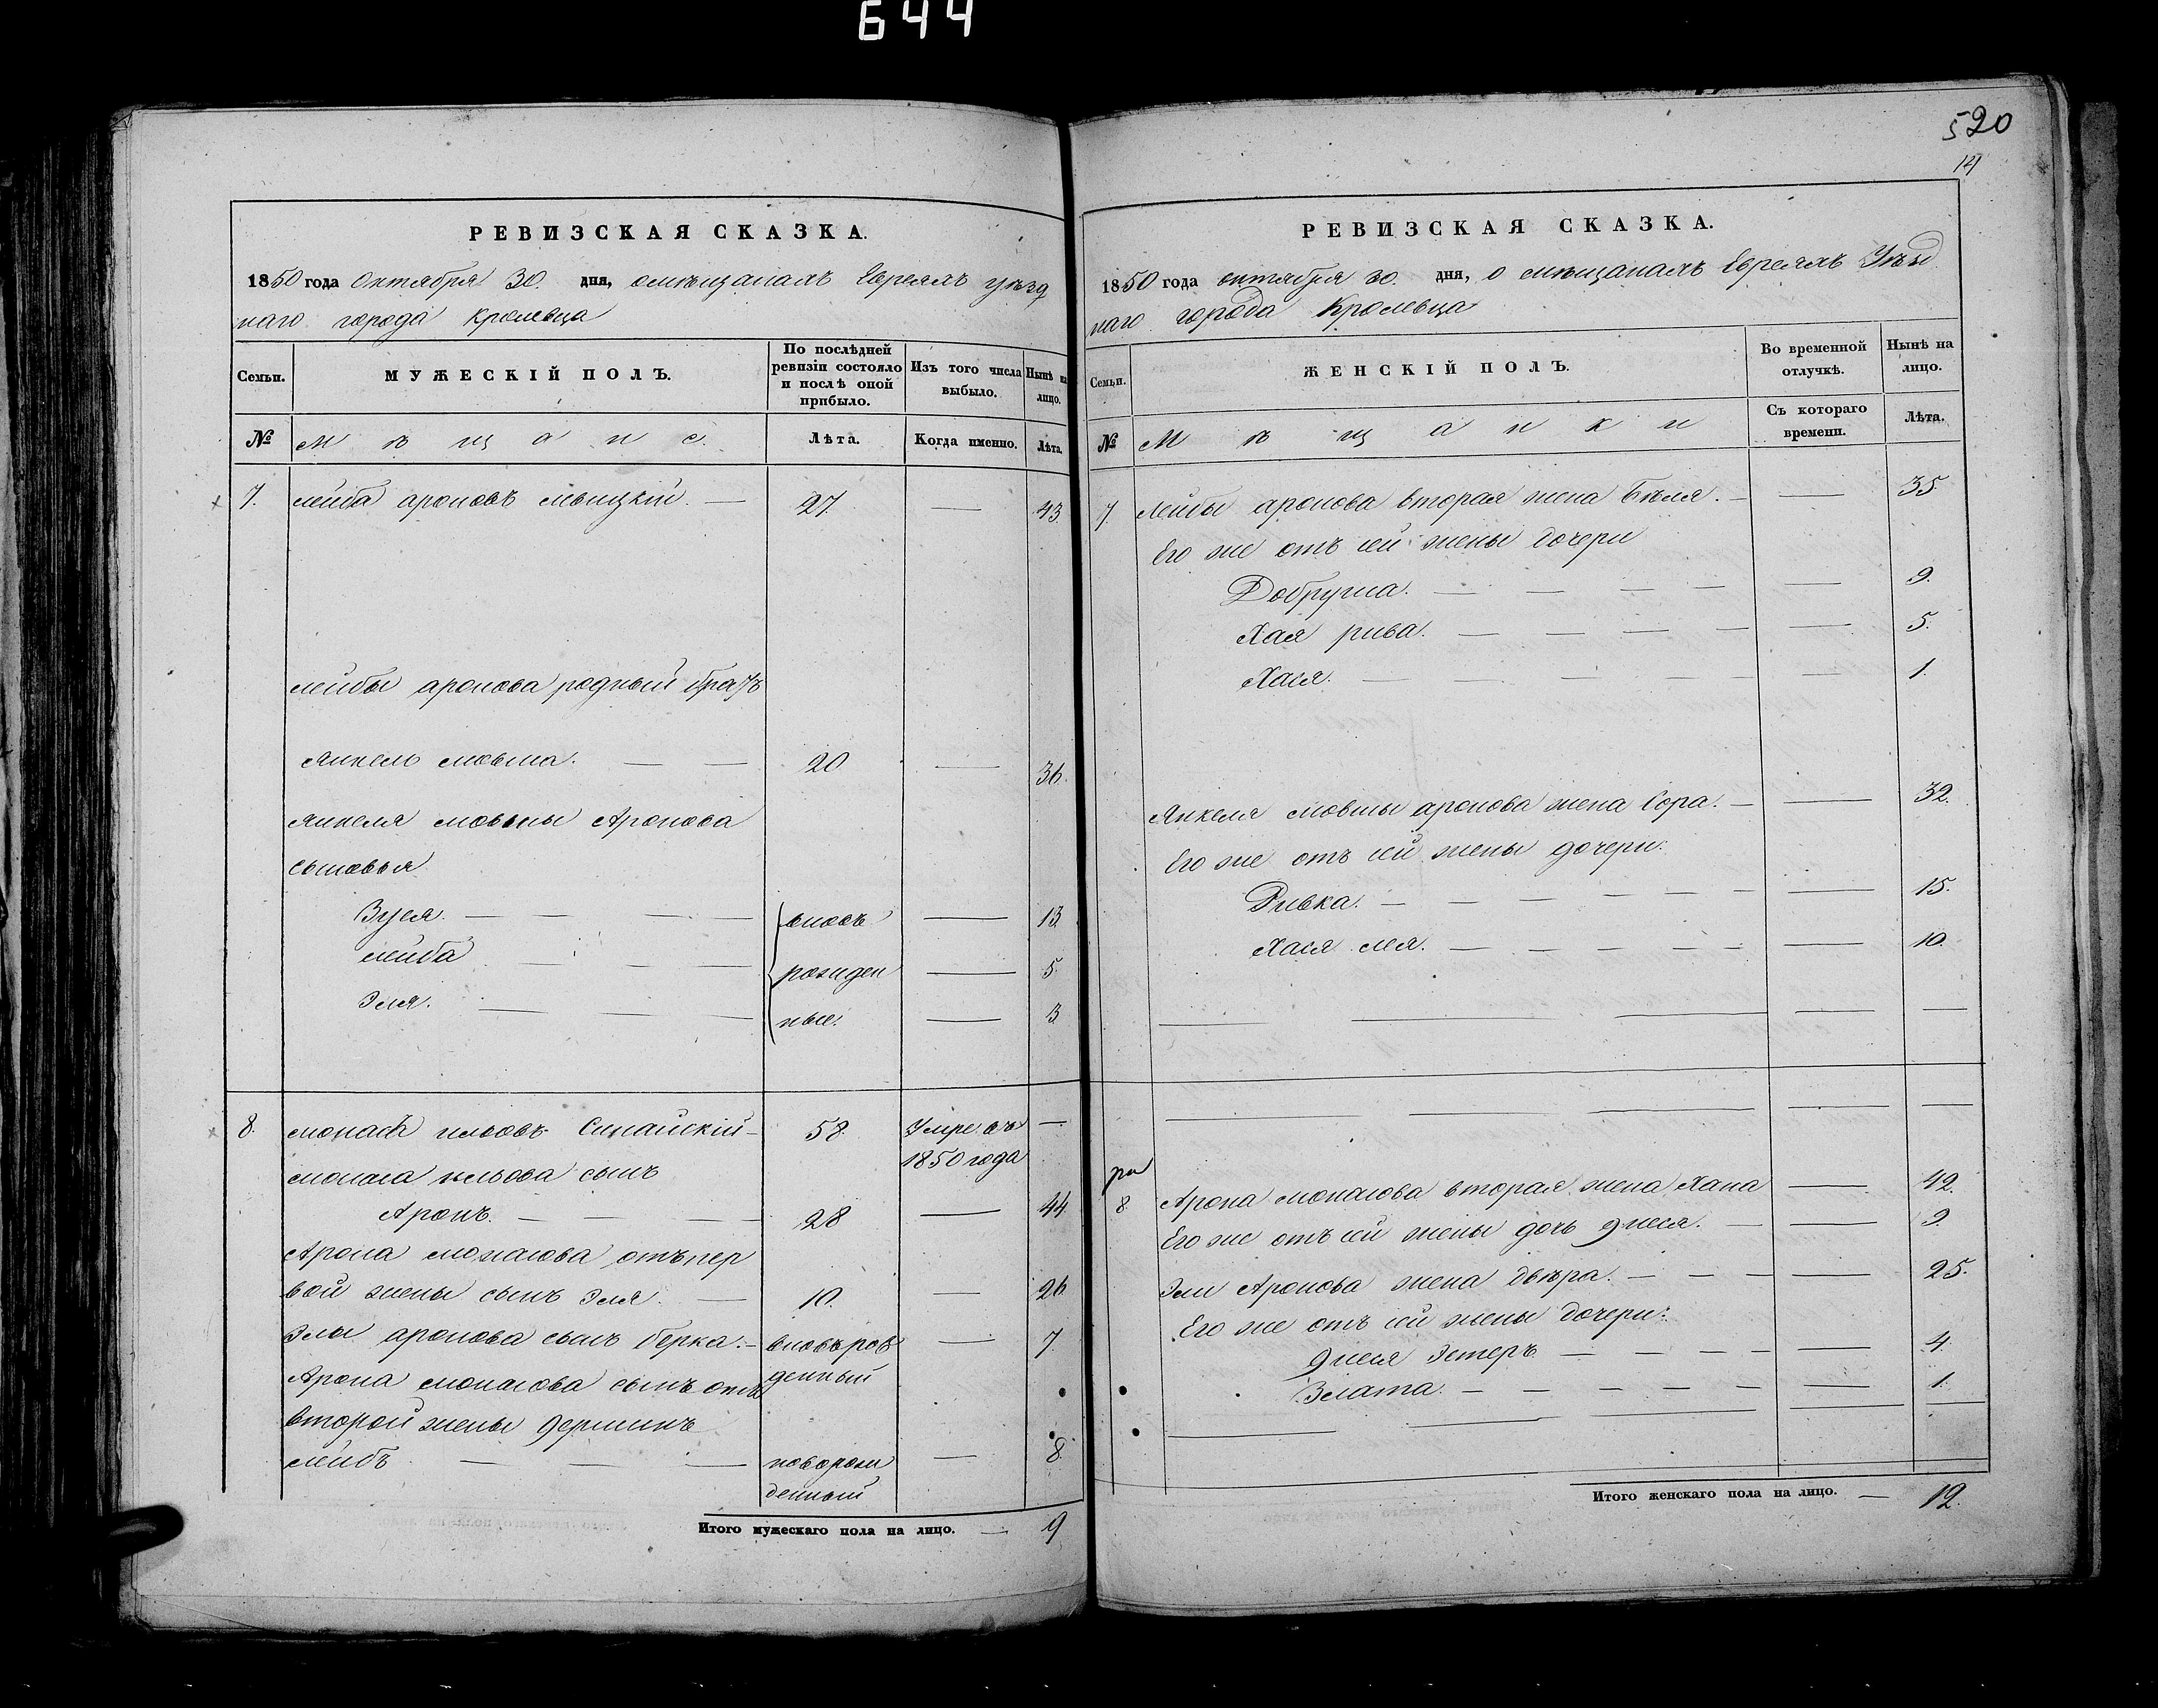 644
РЕВИЗСКАЯ СКАЗКА.
1850 года Октября 30. дня, о мѣщанахъ Евреяхъ уѣзд
наго города Кролевца
Семьи.
МУЖЕСКІЙ ПОЛЪ.
По послѣдней ревизіи состояло и послѣ оной прибыло.
Изъ того числа выбыло.
Нынѣ на лицо.
№
Мѣщане.
Лѣта.
Когда именно.
Лѣта.
7. Лейба Ароновъ — 27. — 43
Лейбы Аронова родный братъ
Янкель Мовша. — — 20 — 36.
Янкеля Мовши Аронова
сыновья
Зуся. — — — — вновь — 13.
Лейба — — — рожден — 5.
Эля. — — — ные. — 3
8. Монасъ Синайскій — 58. Умре въ —
1850 года
Монаса сынъ
Аронъ. — — — — 28 — 44.
Арона Монасова отъ пер
вой жены сынъ Эля. — 10. — 26.
Эли Аронова сынъ Берка. — вновь рож — 7.
денный
Арона Монасова сынъ отъ
второй жены
Лейбъ — — — оворож — 8.
денный
Итого мужескаго пола на лицо. — 9
520
РЕВИЗСКАЯ СКАЗКА.
1850 года октября 30. дня, о мѣщанахъ Евреяхъ Уѣзд
наго города Кролевца
Семьи.
ЖЕНСКІЙ ПОЛЪ.
Во временной отлучкѣ.
Нынѣ на лицо.
№
Мѣщанки
Съ котораго времени.
Лѣта.
7. Лейбы Аронова вторая жена Бѣля. — — 35.
Его же отъ сей жены дочери
Добруша. — — — — — 9.
Хая Рива. — — — — — 5.
Хася. — — — — — — 1.
Янкеля Мовши Аронова жена Сора. — — 32.
Его же отъ сей жены дочери:
Ривка. — — — — — — 15.
Хася Лея. — — — — — — 10.
8 Арона Монасова вторая жена Хана — 42.
Его же отъ сей жены дочь Днеся. — — 9.
Эли Аронова жена Двѣра. — — — — 25.
Его же отъ сей жены дочери:
Днеся Эстеръ — — — — — 4.
Злата. — — — — — — 1.
Итого женскаго пола на лицо. — 12.